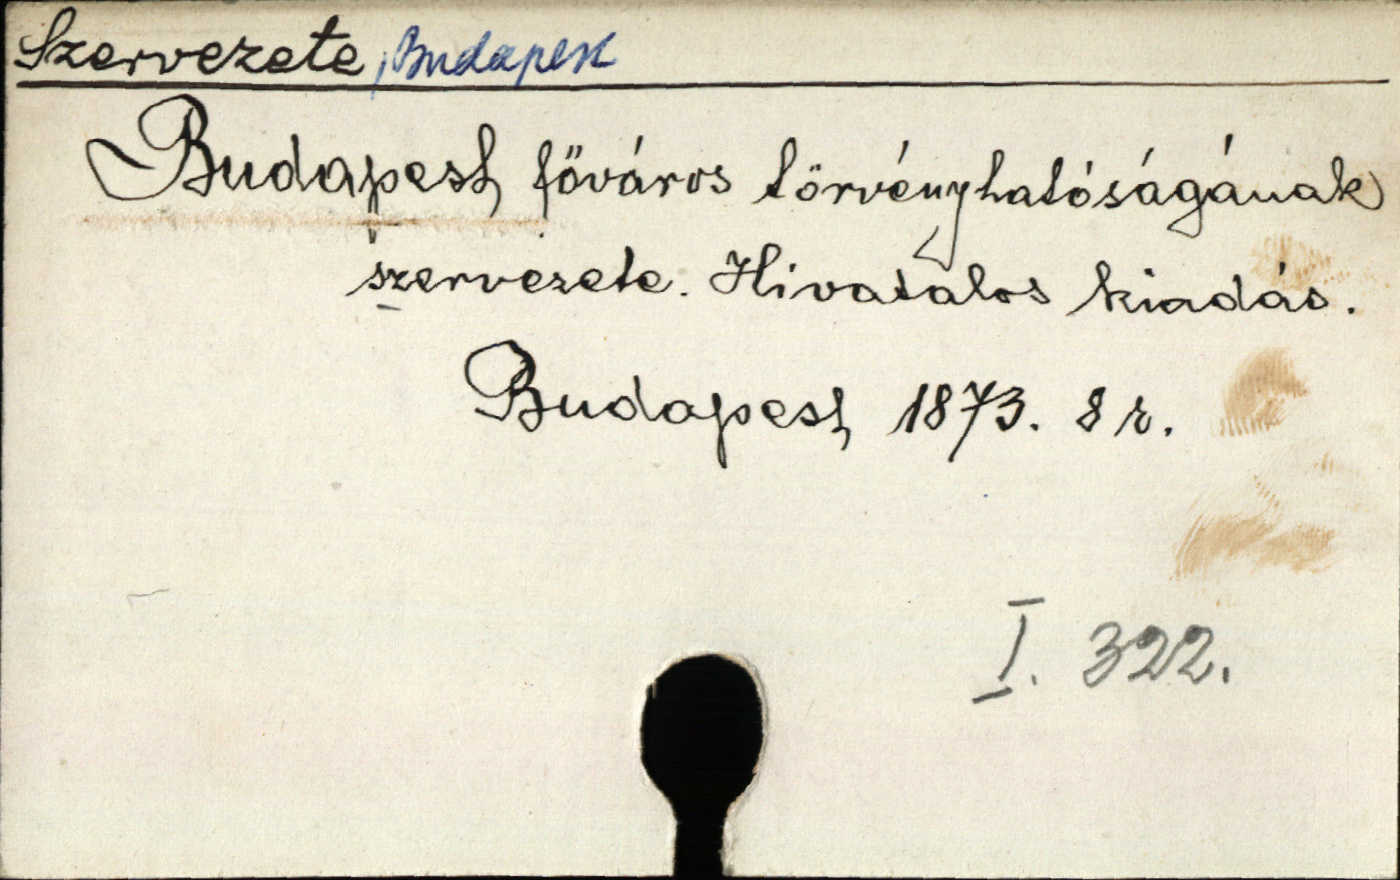 Szervezete, Budapest
Budapest főváros törvényhatóságának
szervezete. Hivatalos kiadás.
Budapest, 1873. 8 r.
I. 322.